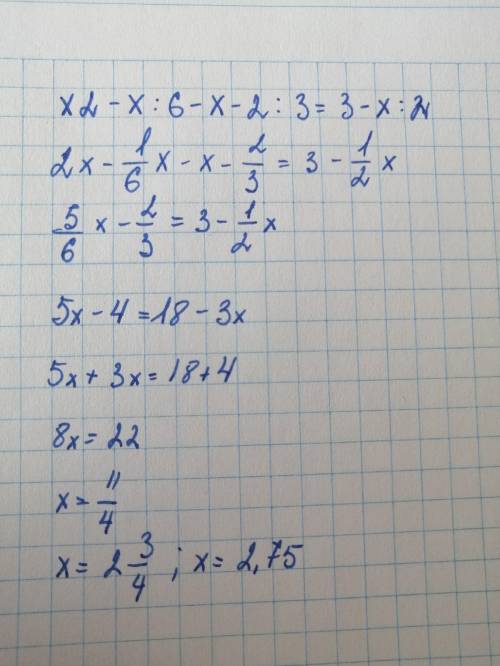 x2 - x : 6 - x - 2 : 3 = 3 - x : 2
2x - 1/6 x - x - 2/3 = 3 - 1/2 x
5/6 x - 2/3 = 3 - 1/2 x
5x - 4 = 18 - 3x
5x + 3x = 18 + 4
8x = 22
x = 11/4
x = 2 3/4 ; x = 2,75